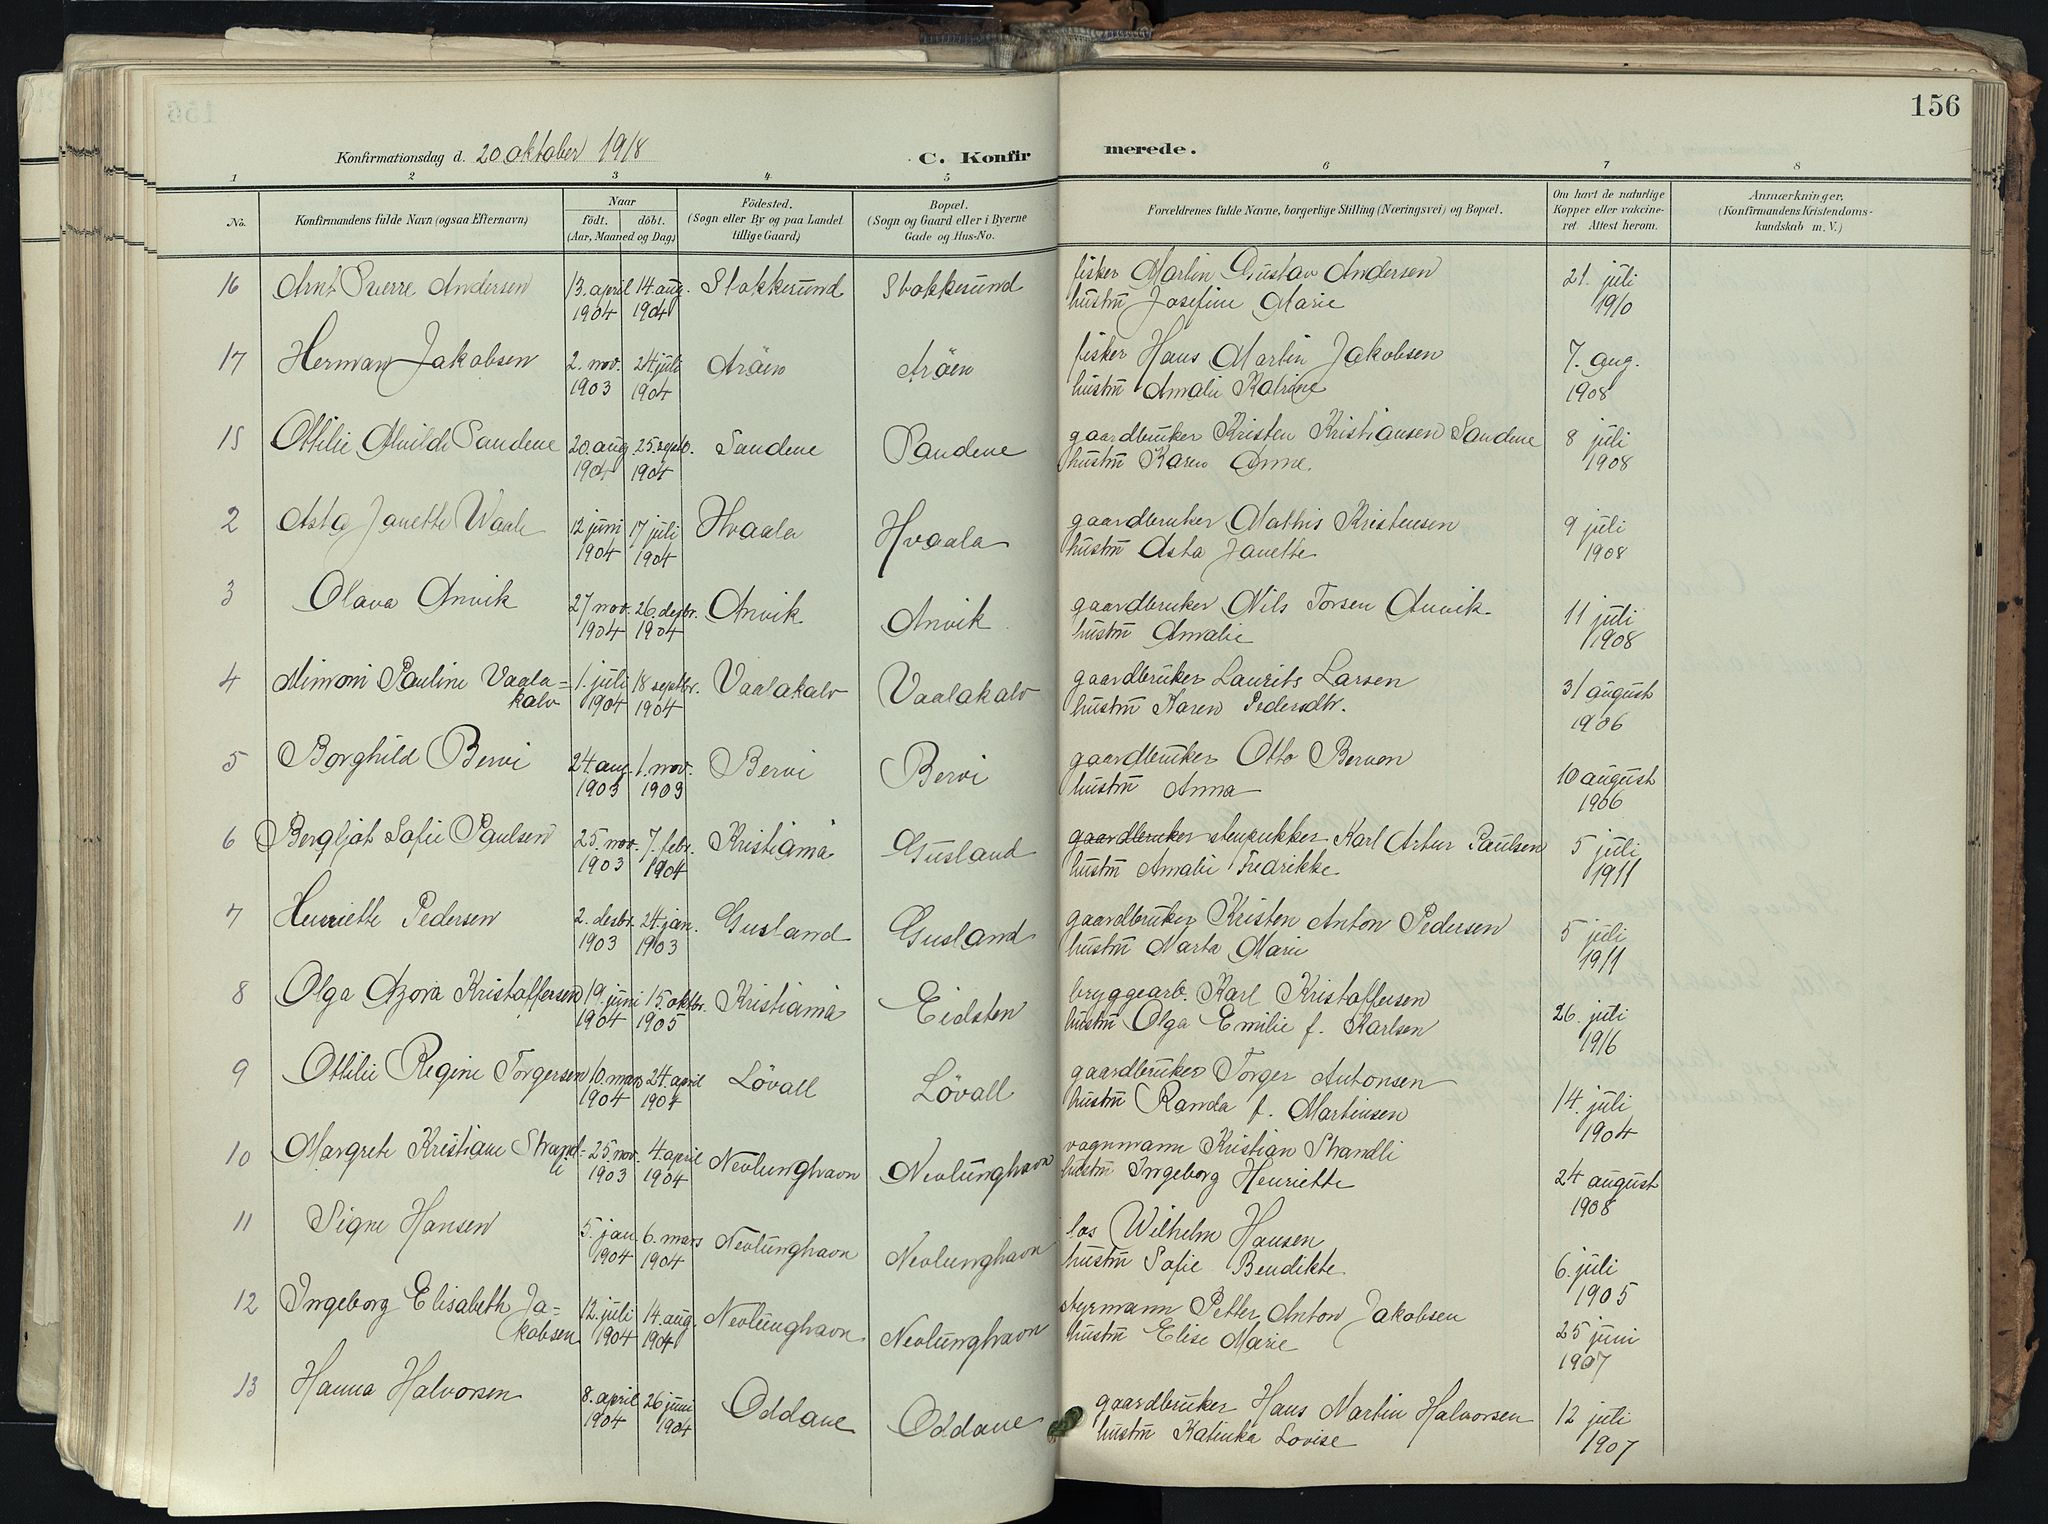 156
Konfirmationsdag d. 20 oktober 1918 C. Konfir merede.
1 2 3 4 5 6 7 8
No. Konfirmandens fulde Navn (ogsaa Efternavn) Naar födt. döbt. (Aar, Maaned og Dag) Födested. (Sogn eller By og paa Landet tillige Gaard) Bopæl. (Sogn og Gaard eller i Byerne Gade og Hus-No. Forældrenes fulde Navne, borgerlige Stilling (Næringsvei) og Bopæl. Om havt de naturlige Kopper eller vakcineret. Attest herom. Anmærkninger. (Konfirmandens Kristendomskundskab m. V.)
16 Arnt Sverre Andersen 13. april 14 aug. Stokkesund Stokkesund fisker Martin Gustav Andersen 21. juli
1904 1904 hustru Josefine Marie 1910
17 Herman Jakobsen 2. nov. 24 juli Aröen Aröen fisker Hans Martin Jakobsen 7. aug.
1903 1904 hustru Amalie Katrine 1908
15 Ottilie Alvilde Sandene 20. aug 25. septb. Sandene Sandene gaardbruker Kristen Kristiansen Sandene 8 juli
1904 1904 hustru Karen Anne. 1908
2 Asta Janette Waale 12 juni 17 juli Hvaala Hvaala gaardbruker Mathis Kristensen 9 juli
1904 1904 hustru Asta Janette 1908
3 Olava Anvik 27 nov. 26 desbr. Anvik Anvik gaardbruker Nils Torsen Anvik 11 juli
1904 1904 hustru Amalie 1908
4 Mimmi Pauline Vaala= 1. juli 18 septbr. Vaalakalv Vaalakalv gaardbruker Laurits Larsen 31 august
kalv 1904 1904 hustru Karen Pedersdtr. 1906
5 Borghild Bervi 24. aug. 1. nov. Bervi Bervi gaardbruker Otto Berven 10 august
1903 1903 hustru Anna 1906
6 Bergljot Sofie Paulsen 25. nov. 7. febr. Kristiania Gusland gaardbruker stenpukker Karl Artur Paulsen 5 juli
1903 1904 hustru Amalie Fredrikke 1911
7 Henriette Pedersen 2. desbr. 24. jan. Gusland Gusland gaardbruker Kristen Anton Pedersen 5 juli
1903 1903 hustru Marta Marie 1911
8 Olga Azora Kristoffersen 19. juni 15. oktbr. Kristiania Eidsten bryggearb. Karl Kristoffersen 26. juli
1904 1905 hustru Olga Emilie f. Karlsen 1916
9 Ottilie Regine Torgersen 10. mars 24. april Lövall Lövall gaardbruker Torger Antonsen 14. juli
1904 1904 hustru Randa f. Martinsen 1904
10 Margrete Kristiane Strand= 25. nov. 4. april Nevlunghavn Nevlunghavn vognmann Kristian Strandli 24 august
li 1903 1904 hustru Ingeborg Henriette 1908
11 Signe Hansen 5. jan. 6. mars Nevlunghavn Nevlunghavn los Wilhelm Hansen 6. juli
1904 1904 hustru Sofie Bendikte 1905
12 Ingeborg Elisabeth Ja= 12. juli 14. aug. Nevlunghavn Nevlunghavn styrmann Petter Anton Jakobsen 25 juni
kobsen 1904 1904 hustru Elise Marie 1907
13 Hanna Halvorsen 8. april 26 juni Oddane Oddane gaardbruker Hans Martin Halvorsen 12 juli
1904 1904 hustru Katinka Lovise 1907